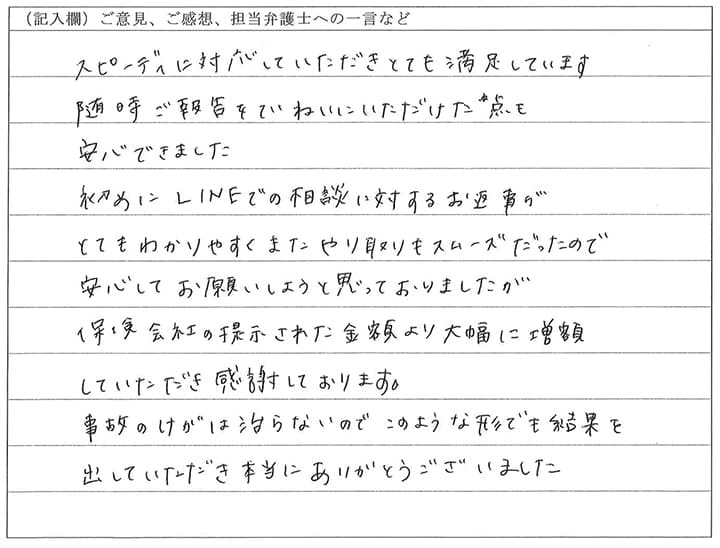 （記入欄）ご意見、ご感想、担当弁護士への一言など
スピーディに対応していただきとても満足しています
随時ご報告をていねいにいただけた点も
安心できました
初めにLINEでの相談に対するお返事が
とてもわかりやすくまたやり取りもスムーズだったので
安心してお願いしようと思っておりましたが
保険会社の提示された金額より大幅に増額
していただき感謝しております。
事故のけがは治らないのでこのような形でも結果を
出していただき本当にありがとうございました